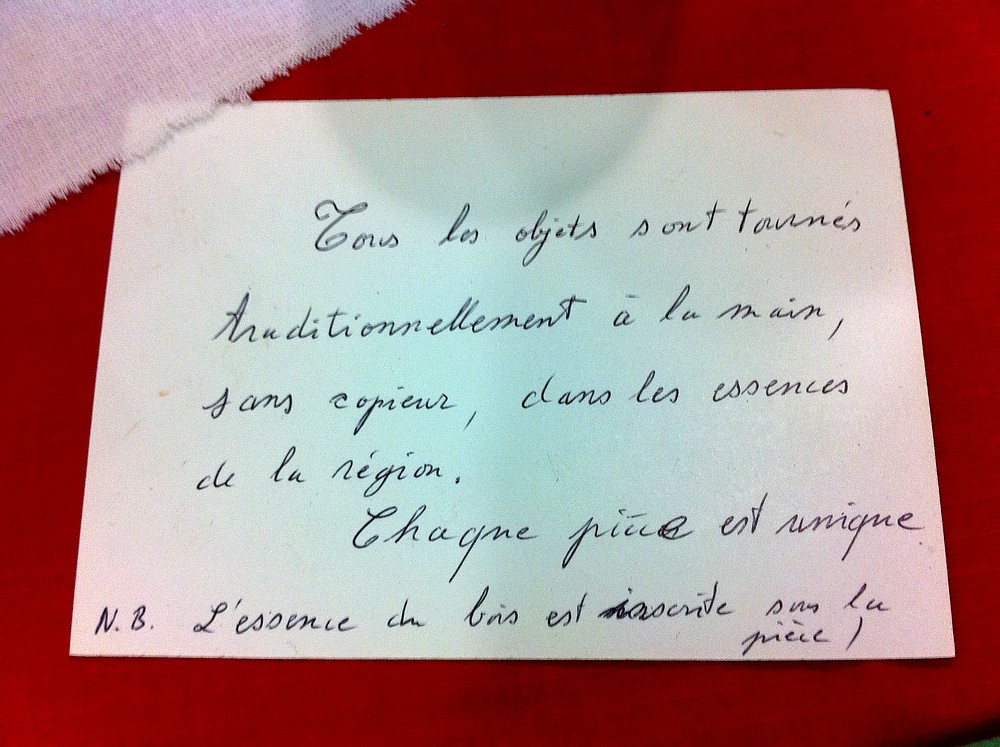 Tous les objets sont tournés
traditionnellement à la main,
sans copieur, dans les essences
de la région.
Chaque pièce est unique
N.B. L'essence du bois est inscrite sous la
pièce !